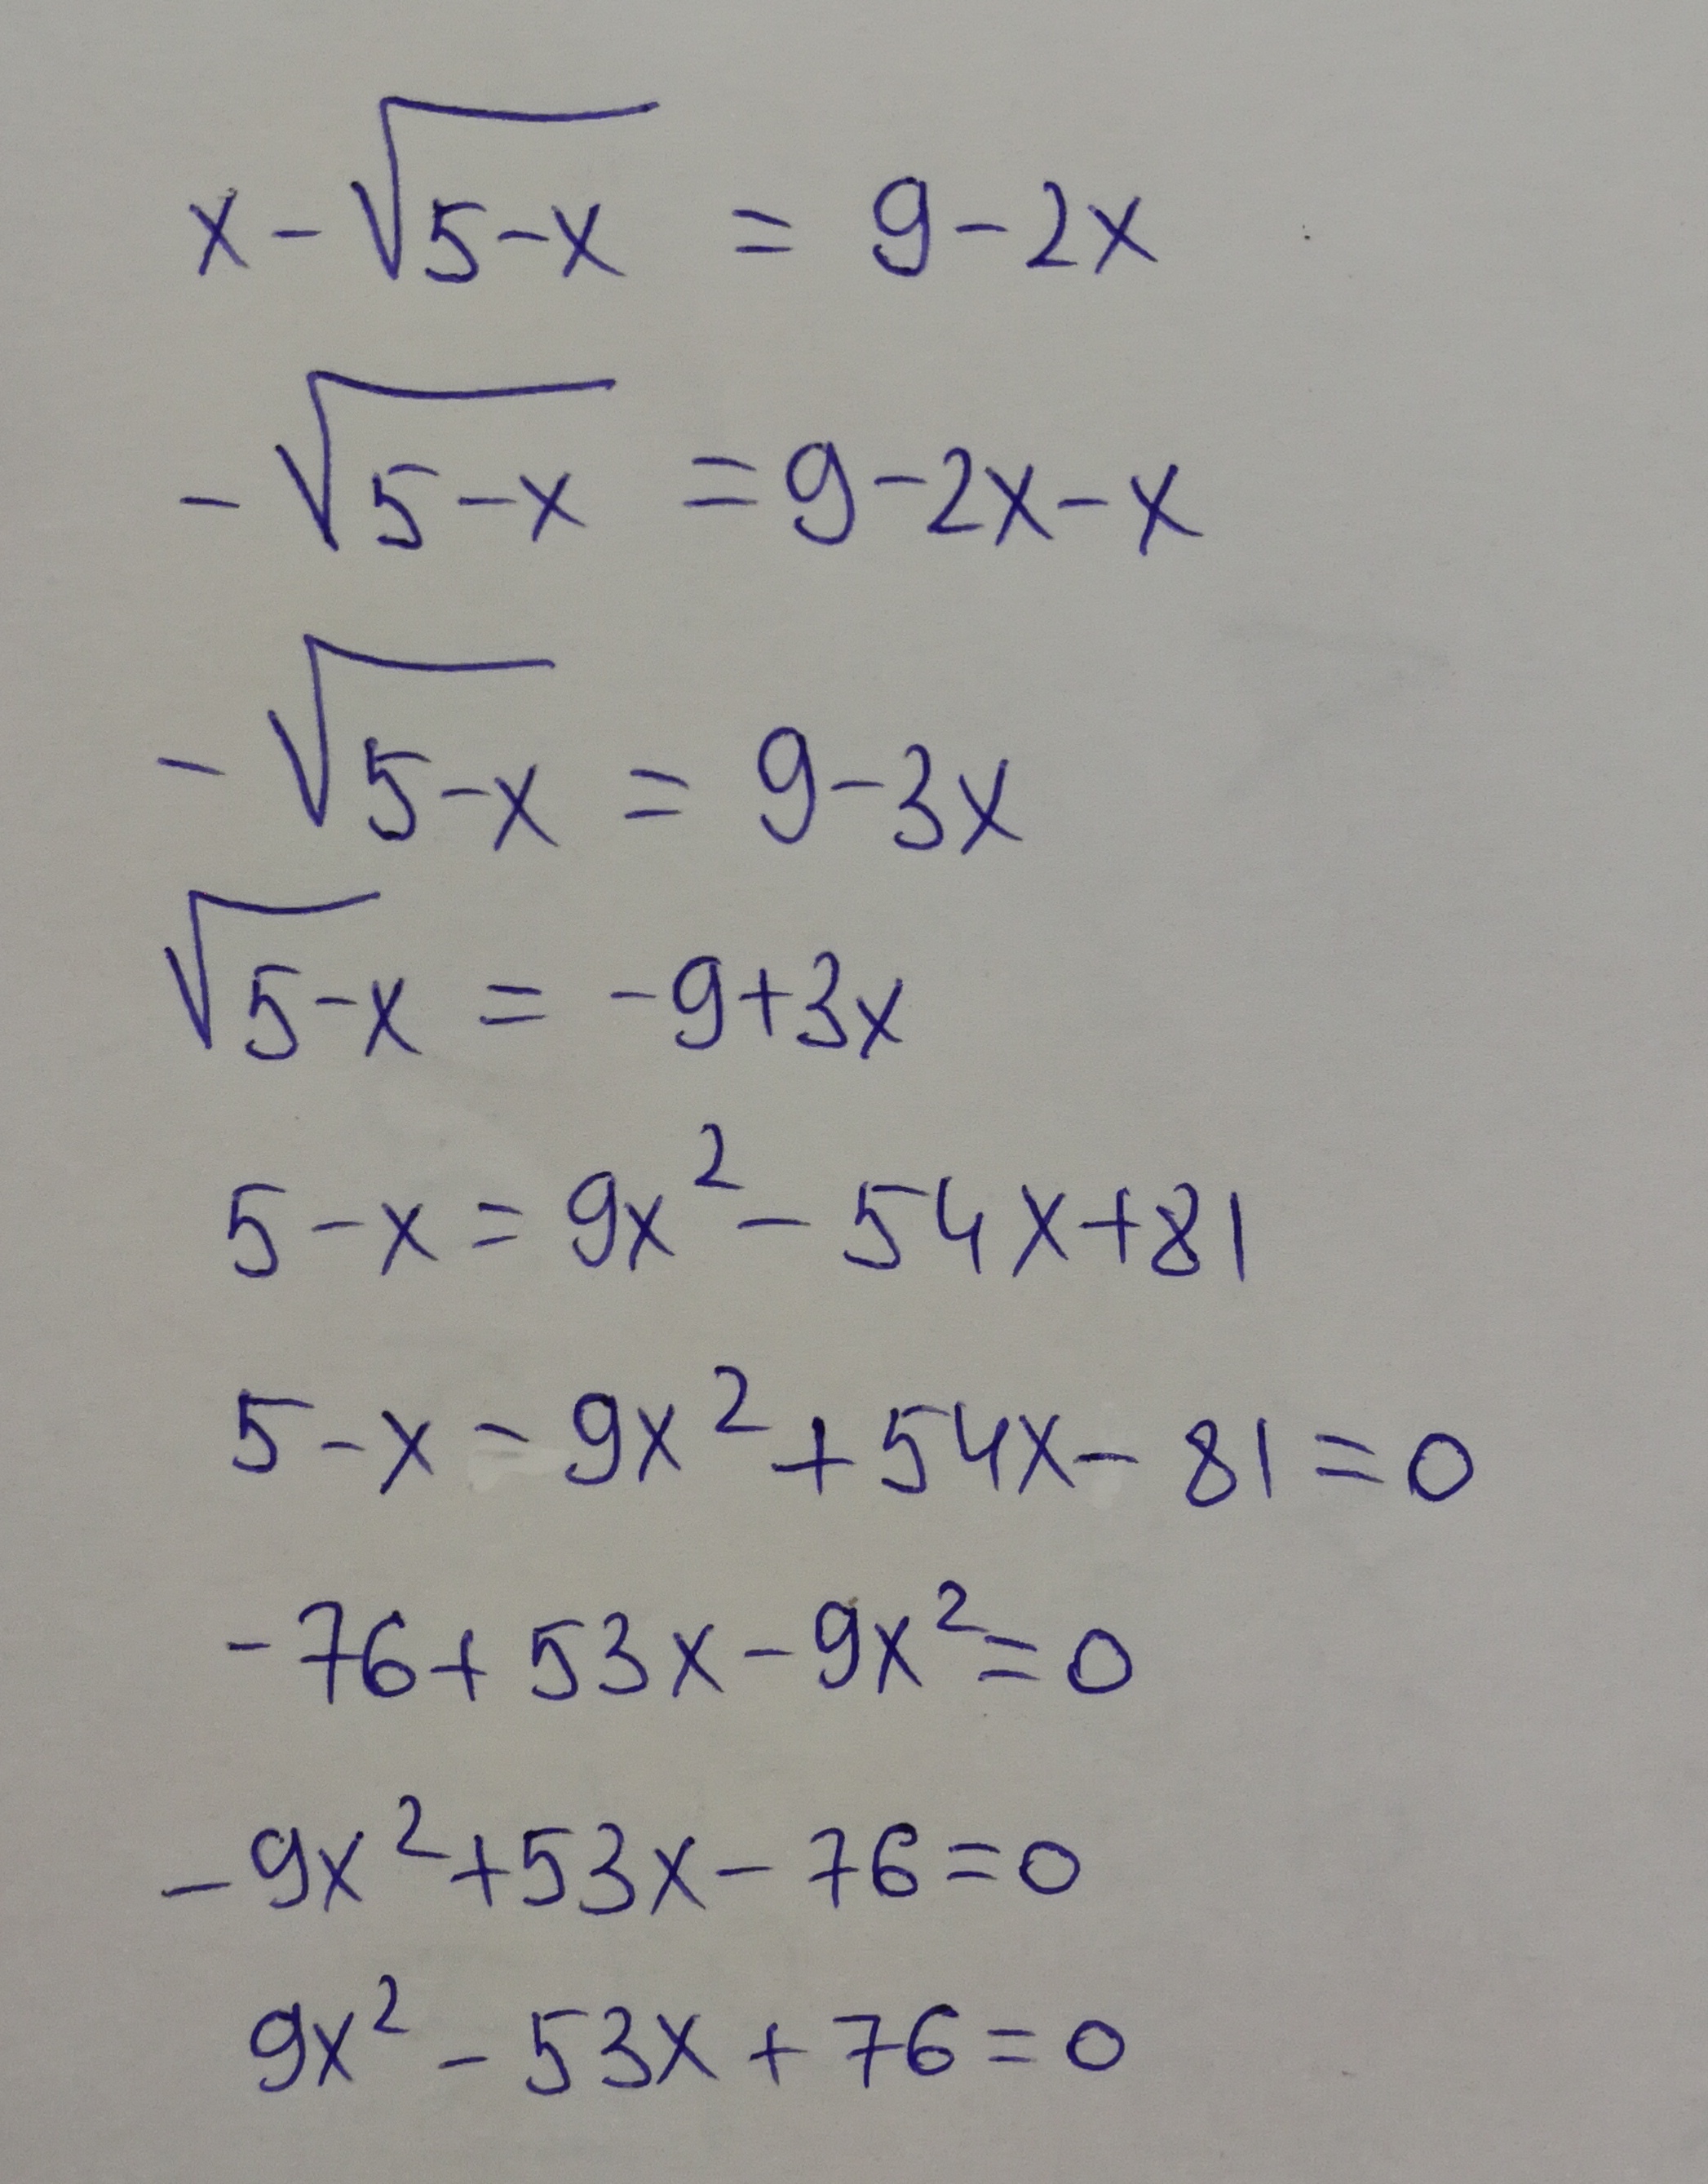 x - √(5-x) = 9 - 2x
- √(5-x) = 9 - 2x - x
- √(5-x) = 9 - 3x
√(5-x) = -9 + 3x
5 - x = 9x² - 54x + 81
5 - x - 9x² + 54x - 81 = 0
-76 + 53x - 9x² = 0
-9x² + 53x - 76 = 0
9x² - 53x + 76 = 0